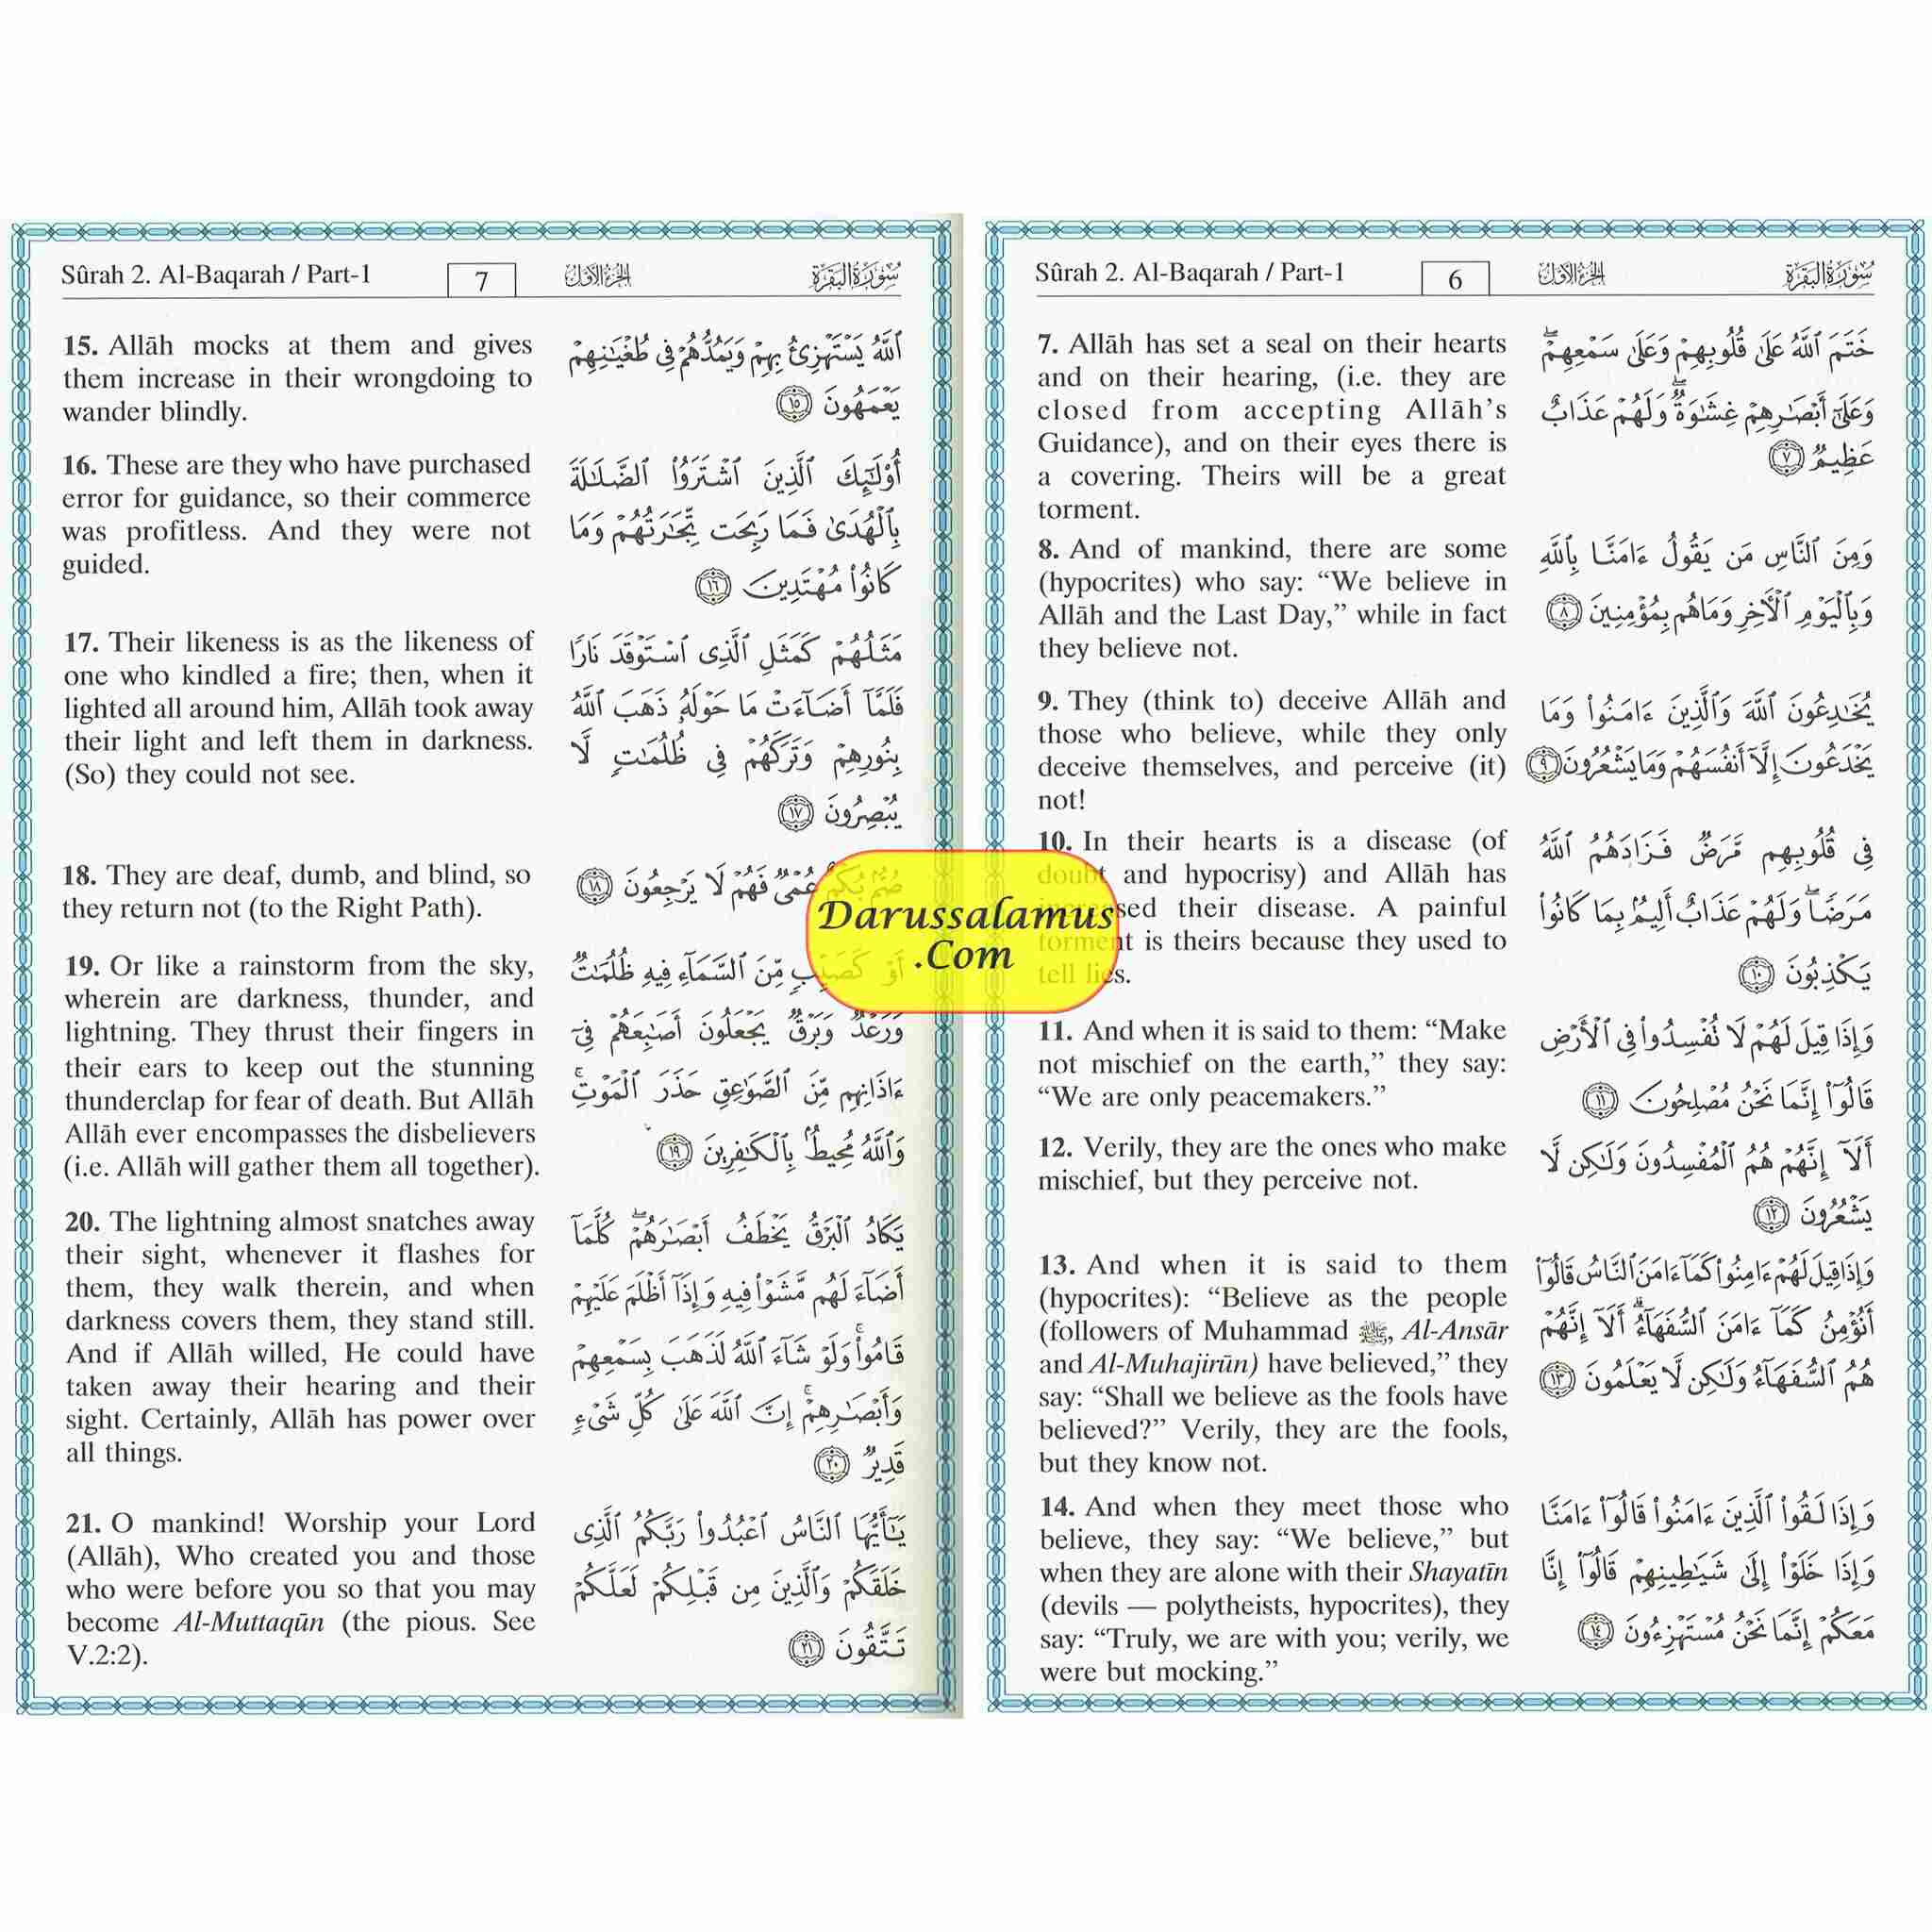 Sûrah 2. Al-Baqarah / Part-1 6 الجزء الأول سورة البقرة
7. Allāh has set a seal on their hearts
and on their hearing, (i.e. they are
closed from accepting Allāh's
Guidance), and on their eyes there is
a covering. Theirs will be a great
torment.
خَتَمَ ٱللَّهُ عَلَىٰ قُلُوبِهِمْ وَعَلَىٰ سَمْعِهِمْ ۖ
وَعَلَىٰٓ أَبْصَـٰرِهِمْ غِشَـٰوَةٌ ۖ وَلَهُمْ عَذَابٌ
عَظِيمٌ ٧
8. And of mankind, there are some
(hypocrites) who say: “We believe in
Allāh and the Last Day,” while in fact
they believe not.
وَمِنَ ٱلنَّاسِ مَن يَقُولُ ءَامَنَّا بِٱللَّهِ
وَبِٱلْيَوْمِ ٱلْـَٔاخِرِ وَمَا هُم بِمُؤْمِنِينَ ٨
9. They (think to) deceive Allāh and
those who believe, while they only
deceive themselves, and perceive (it)
not!
يُخَـٰدِعُونَ ٱللَّهَ وَٱلَّذِينَ ءَامَنُوا۟ وَمَا
يَخْدَعُونَ إِلَّآ أَنفُسَهُمْ وَمَا يَشْعُرُونَ ٩
10. In their hearts is a disease (of
doubt and hypocrisy) and Allāh has
increased their disease. A painful
torment is theirs because they used to
tell lies.
فِى قُلُوبِهِم مَّرَضٌ فَزَادَهُمُ ٱللَّهُ
مَرَضًا ۖ وَلَهُمْ عَذَابٌ أَلِيمٌۢ بِمَا كَانُوا۟
يَكْذِبُونَ ١٠
11. And when it is said to them: “Make
not mischief on the earth,” they say:
“We are only peacemakers.”
وَإِذَا قِيلَ لَهُمْ لَا تُفْسِدُوا۟ فِى ٱلْأَرْضِ
قَالُوٓا۟ إِنَّمَا نَحْنُ مُصْلِحُونَ ١١
12. Verily, they are the ones who make
mischief, but they perceive not.
أَلَآ إِنَّهُمْ هُمُ ٱلْمُفْسِدُونَ وَلَـٰكِن لَّا
يَشْعُرُونَ ١٢
13. And when it is said to them
(hypocrites): “Believe as the people
(followers of Muhammad ﷺ, Al-Ansār
and Al-Muhajirūn) have believed,” they
say: “Shall we believe as the fools have
believed?” Verily, they are the fools,
but they know not.
وَإِذَا قِيلَ لَهُمْ ءَامِنُوا۟ كَمَآ ءَامَنَ ٱلنَّاسُ قَالُوٓا۟
أَنُؤْمِنُ كَمَآ ءَامَنَ ٱلسُّفَهَآءُ ۗ أَلَآ إِنَّهُمْ
هُمُ ٱلسُّفَهَآءُ وَلَـٰكِن لَّا يَعْلَمُونَ ١٣
14. And when they meet those who
believe, they say: “We believe,” but
when they are alone with their Shayatīn
(devils — polytheists, hypocrites), they
say: “Truly, we are with you; verily, we
were but mocking.”
وَإِذَا لَقُوا۟ ٱلَّذِينَ ءَامَنُوا۟ قَالُوٓا۟ ءَامَنَّا
وَإِذَا خَلَوْا۟ إِلَىٰ شَيَـٰطِينِهِمْ قَالُوٓا۟ إِنَّا
مَعَكُمْ إِنَّمَا نَحْنُ مُسْتَهْزِءُونَ ١٤
Sûrah 2. Al-Baqarah / Part-1 7 الجزء الأول سورة البقرة
15. Allāh mocks at them and gives
them increase in their wrongdoing to
wander blindly.
ٱللَّهُ يَسْتَهْزِئُ بِهِمْ وَيَمُدُّهُمْ فِى طُغْيَـٰنِهِمْ
يَعْمَهُونَ ١٥
16. These are they who have purchased
error for guidance, so their commerce
was profitless. And they were not
guided.
أُو۟لَـٰٓئِكَ ٱلَّذِينَ ٱشْتَرَوُا۟ ٱلضَّلَـٰلَةَ
بِٱلْهُدَىٰ فَمَا رَبِحَت تِّجَـٰرَتُهُمْ وَمَا
كَانُوا۟ مُهْتَدِينَ ١٦
17. Their likeness is as the likeness of
one who kindled a fire; then, when it
lighted all around him, Allāh took away
their light and left them in darkness.
(So) they could not see.
مَثَلُهُمْ كَمَثَلِ ٱلَّذِى ٱسْتَوْقَدَ نَارًا
فَلَمَّآ أَضَآءَتْ مَا حَوْلَهُۥ ذَهَبَ ٱللَّهُ
بِنُورِهِمْ وَتَرَكَهُمْ فِى ظُلُمَـٰتٍ لَّا
يُبْصِرُونَ ١٧
18. They are deaf, dumb, and blind, so
they return not (to the Right Path).
صُمٌّۢ بُكْمٌ عُمْىٌ فَهُمْ لَا يَرْجِعُونَ ١٨
19. Or like a rainstorm from the sky,
wherein are darkness, thunder, and
lightning. They thrust their fingers in
their ears to keep out the stunning
thunderclap for fear of death. But Allāh
Allāh ever encompasses the disbelievers
(i.e. Allāh will gather them all together).
أَوْ كَصَيِّبٍ مِّنَ ٱلسَّمَآءِ فِيهِ ظُلُمَـٰتٌ
وَرَعْدٌ وَبَرْقٌ يَجْعَلُونَ أَصَـٰبِعَهُمْ فِىٓ
ءَاذَانِهِم مِّنَ ٱلصَّوَٰعِقِ حَذَرَ ٱلْمَوْتِ ۚ
وَٱللَّهُ مُحِيطٌۢ بِٱلْكَـٰفِرِينَ ١٩
20. The lightning almost snatches away
their sight, whenever it flashes for
them, they walk therein, and when
darkness covers them, they stand still.
And if Allāh willed, He could have
taken away their hearing and their
sight. Certainly, Allāh has power over
all things.
يَكَادُ ٱلْبَرْقُ يَخْطَفُ أَبْصَـٰرَهُمْ ۖ كُلَّمَآ
أَضَآءَ لَهُم مَّشَوْا۟ فِيهِ وَإِذَآ أَظْلَمَ عَلَيْهِمْ
قَامُوا۟ ۚ وَلَوْ شَآءَ ٱللَّهُ لَذَهَبَ بِسَمْعِهِمْ
وَأَبْصَـٰرِهِمْ ۚ إِنَّ ٱللَّهَ عَلَىٰ كُلِّ شَىْءٍ
قَدِيرٌ ٢٠
21. O mankind! Worship your Lord
(Allāh), Who created you and those
who were before you so that you may
become Al-Muttaqūn (the pious. See
V.2:2).
يَـٰٓأَيُّهَا ٱلنَّاسُ ٱعْبُدُوا۟ رَبَّكُمُ ٱلَّذِى
خَلَقَكُمْ وَٱلَّذِينَ مِن قَبْلِكُمْ لَعَلَّكُمْ
تَتَّقُونَ ٢١
Darussalamus
.Com